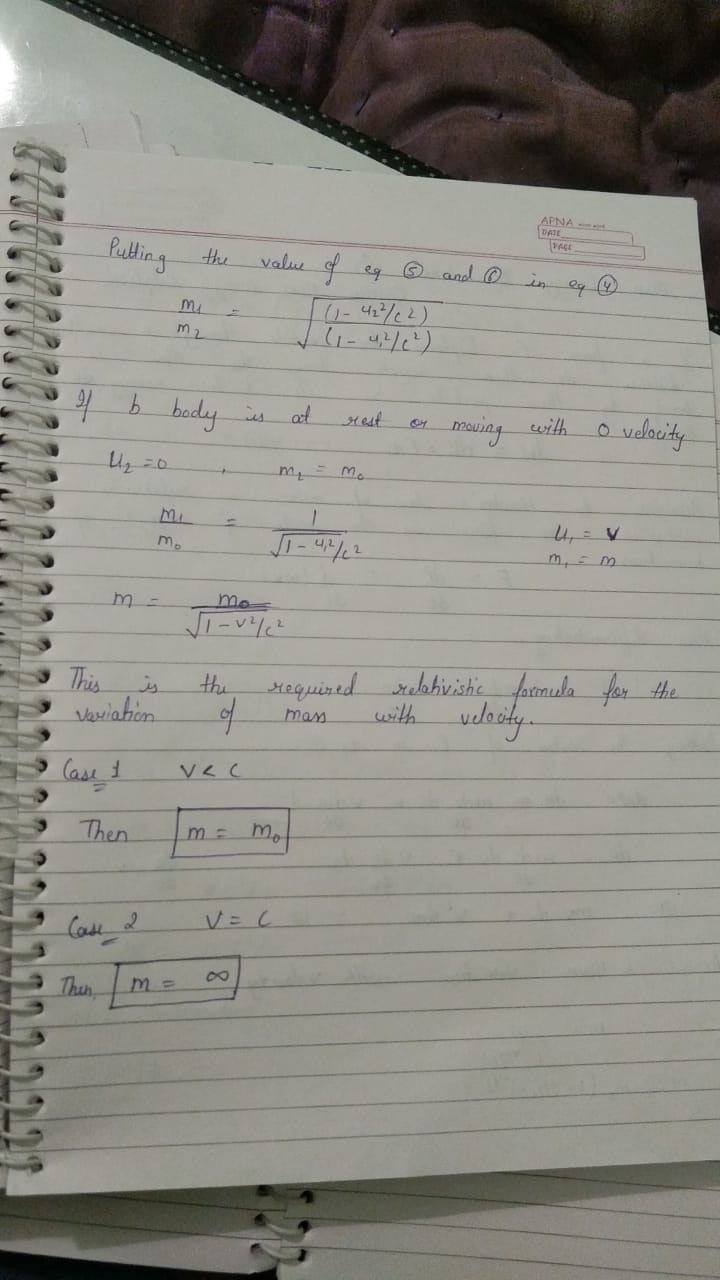 APNA
DATE
PAGE
Putting the value of eq ⑤ and ⑥ in eq ④
m₁/m₂ = √((1 - u₂²/c²)/(1 - u₁²/c²))
If b body is at rest or moving with 0 velocity
U₂ = 0 , m₂ = m₀
m₁/m₀ = 1/√(1 - u₁²/c²) U₁ = v
m₁ = m
m = m₀/√(1 - v²/c²)
This is the required relativistic formula for the
variation of mass with velocity.
Case 1 V < C
Then m = m₀
Case 2 V = C
Then, m = ∞